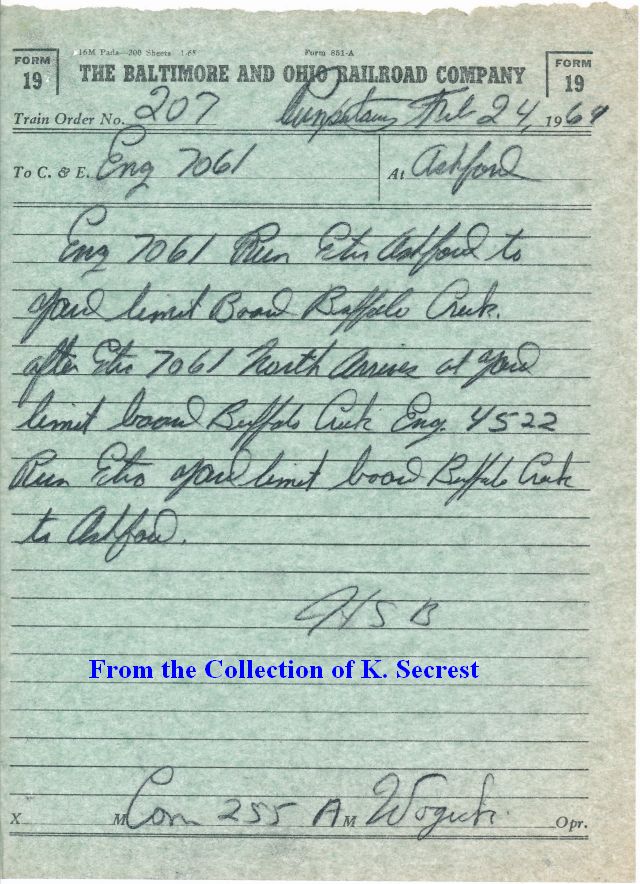 16M Pads—200 Sheets 1-65 Form 851-A
FORM 19 THE BALTIMORE AND OHIO RAILROAD COMPANY FORM 19
Train Order No. 207 Feb 24, 1969
To C. & E. Eng 7061 At Ashford
Eng 7061 Run Extra Ashford to
yard limit Board Buffalo Creek.
after Extra 7061 North Arrives at yard
limit board Buffalo Creek Eng. 4522
Run Extra yard limit board Buffalo Creek
to Ashford.
HSB
From the Collection of K. Secrest
X M Com 255 A M Opr.